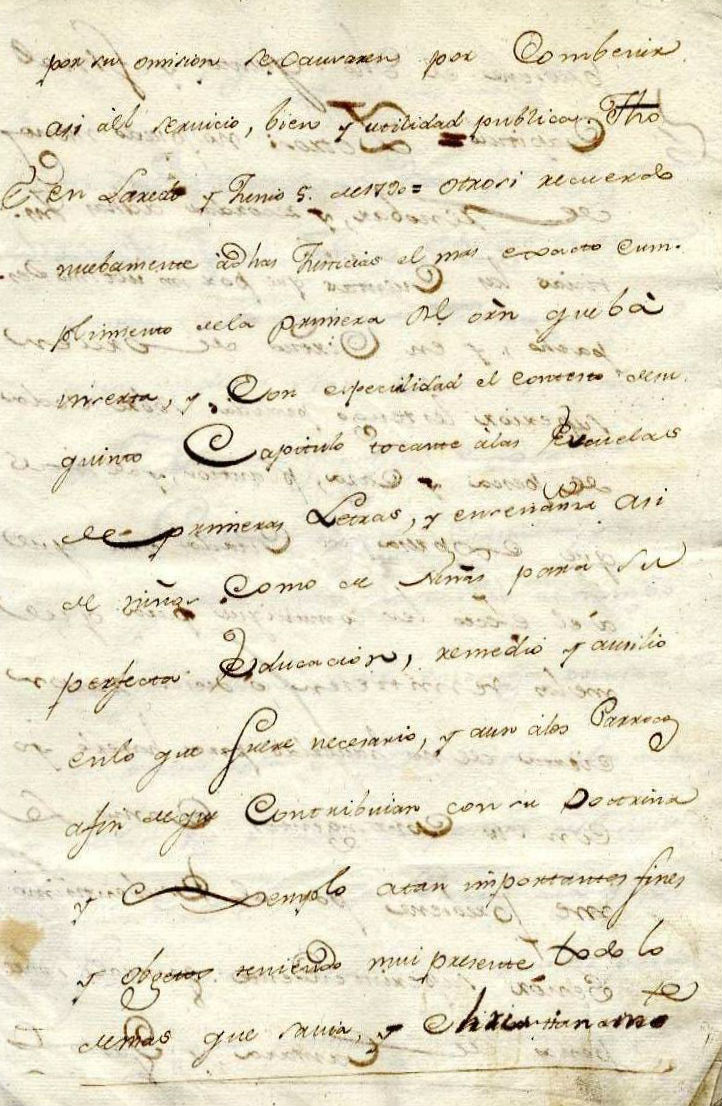 por su omision se causaren por Combenir
asi àêl servicio, bien y utilidad publica. Fho
en Laredo y Junio 5. de 1790 = otrosi recuerdo
nuebamente àdhas Justicias el mas exacto cum-
plimiento dela primera Rl. orn que bà
inserta, y Con especilidad el contesto desu
quinto Capitulo tocante alas Escuelas
de primeras Letras, y enseñanza asi
de niños Como de niñas para su
perfecta Educacion, remedio y ausilio
enlo que fuere necesario, y aun àlos Parrocos
afin deque Contribuian con su Doctrina
y Exemplo atan importantes fines
y obgetos teniendo mui presente todo lo
demas que savia, y Christianamte